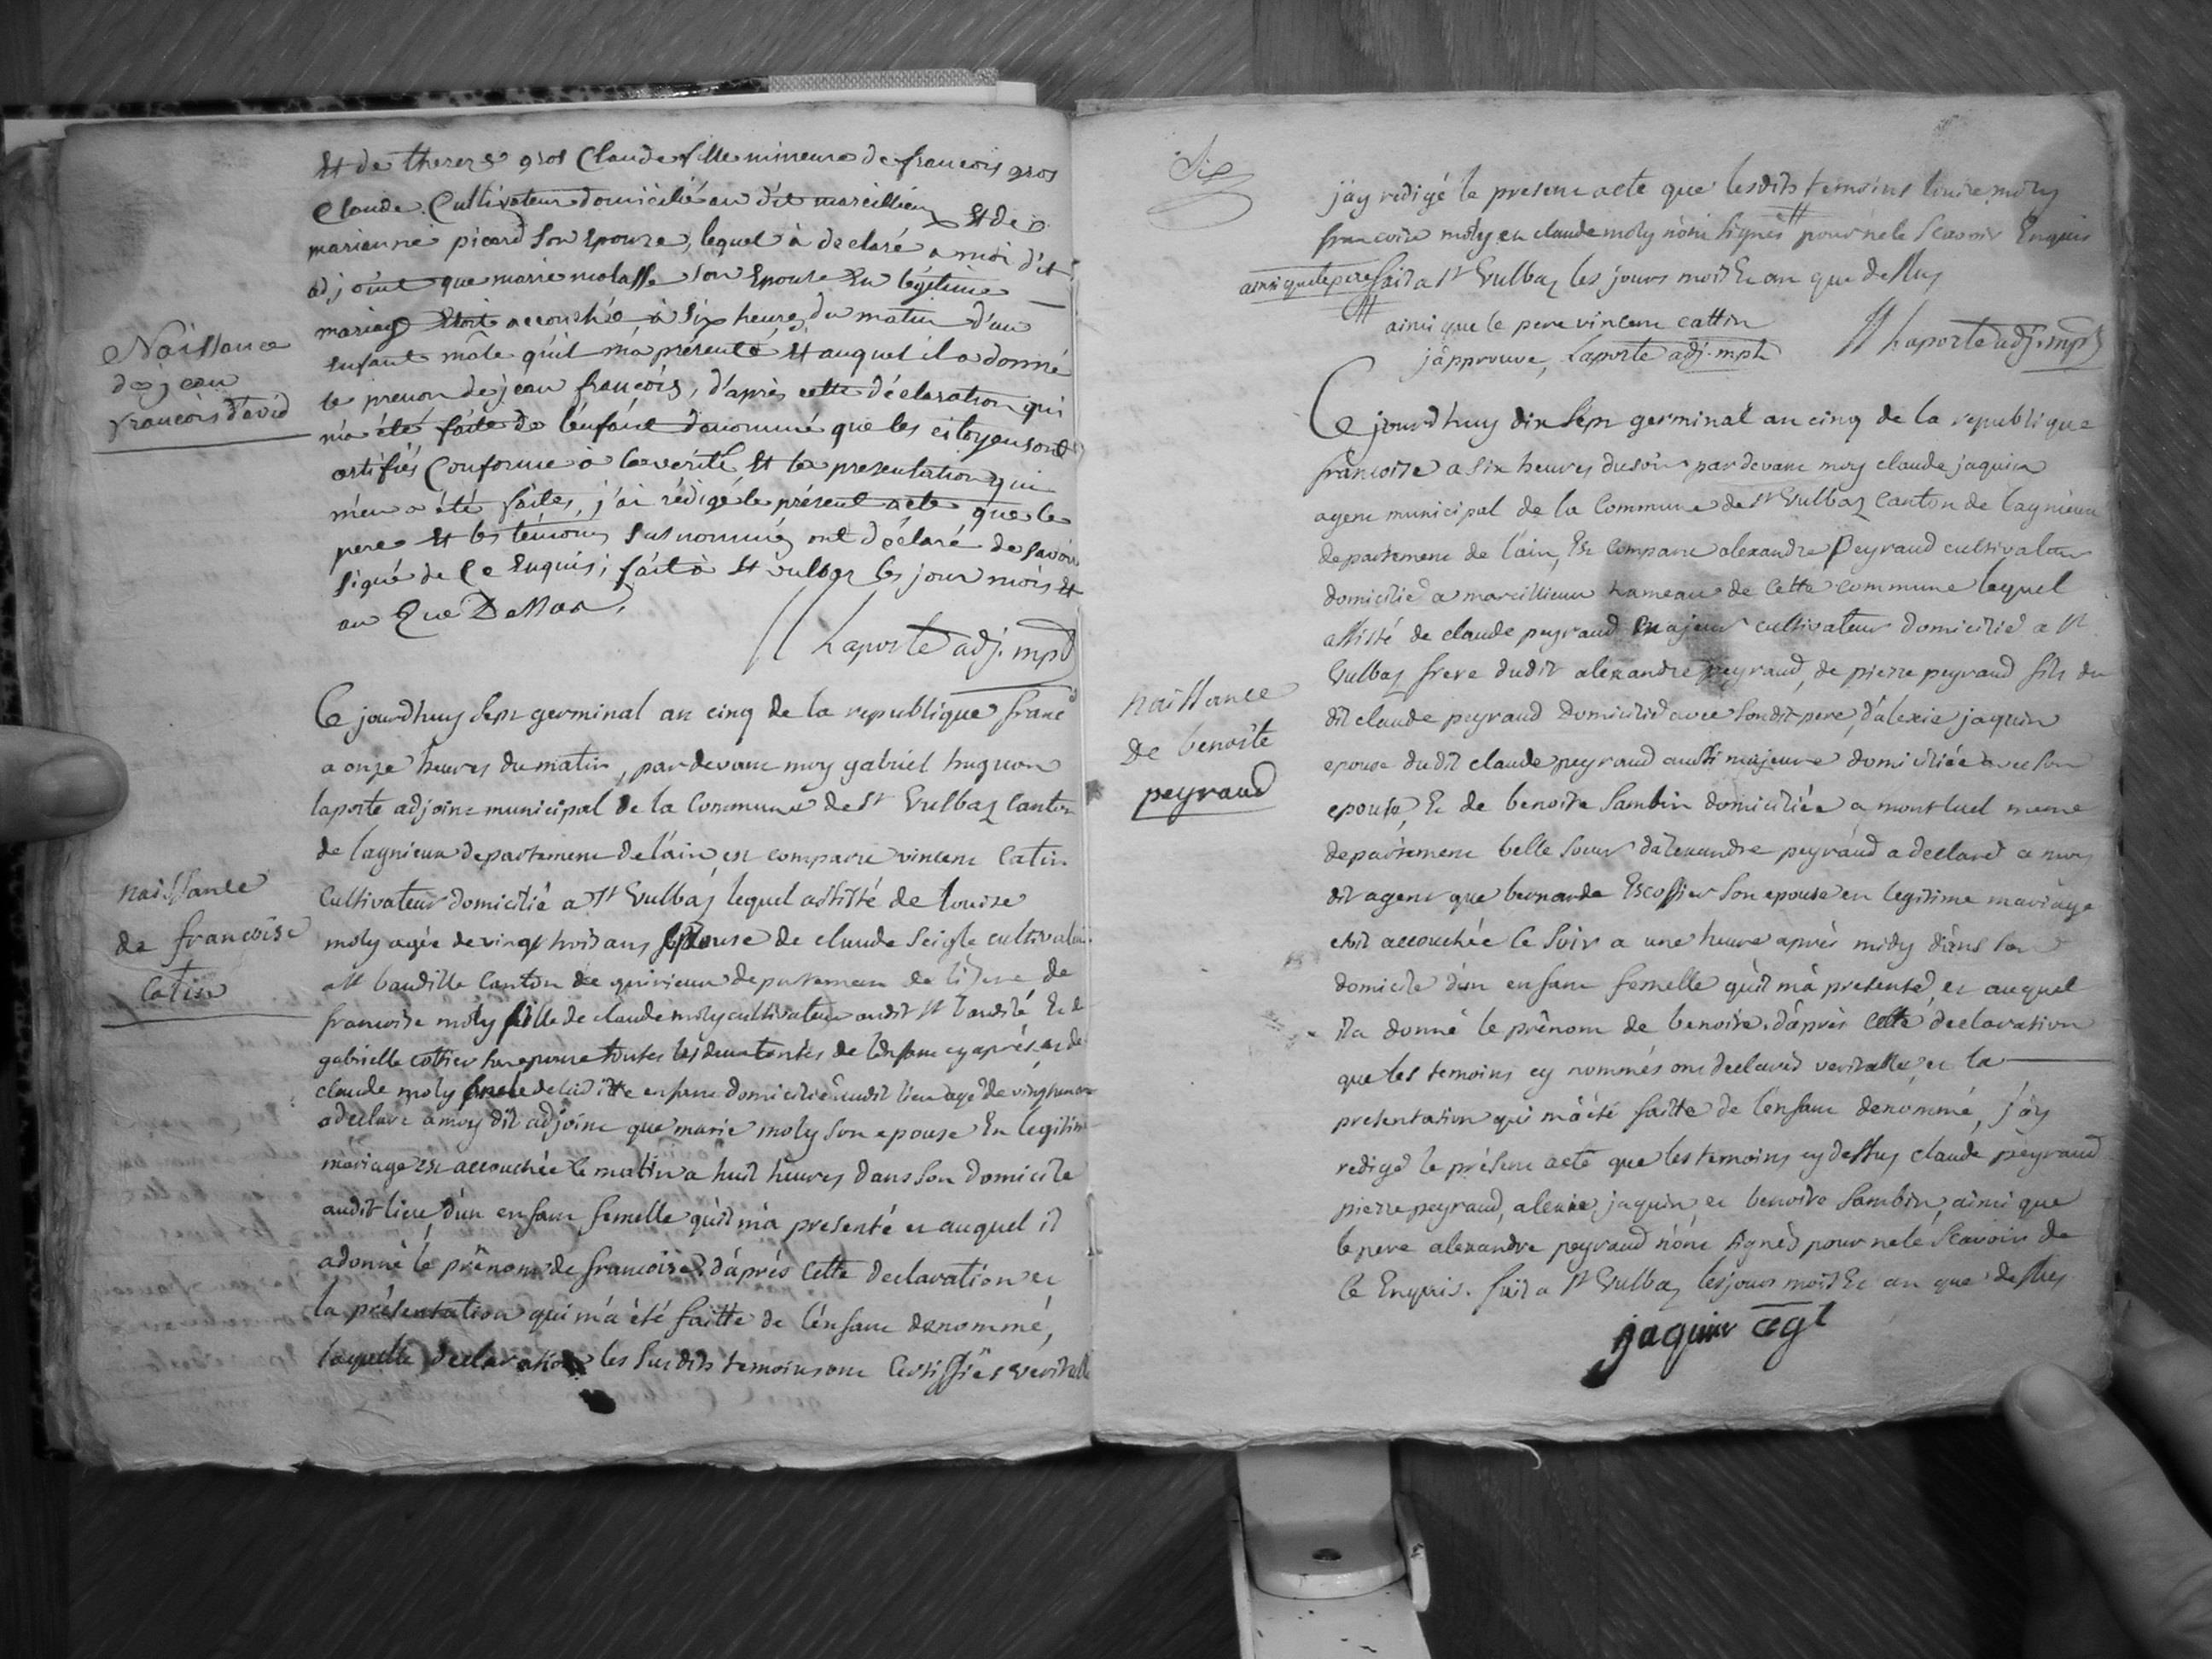 Et de therese gros Claude fille mineure de francois gros
Claude Cultivateur domicilié au dit marcillieux Et de
marianne picard son Epouse, lequel à declaré a moi d'it
adjoint que marie molasse son Epouse En légitime
mariage Etoit accouchée à six heures du matin d'un
Naissance
de jean
francois david
enfant mâle qu'il m'a présenté Et auquel il a donné
le prenon de jean francois, d'après cette déclaration qui
m'a été faite de l'enfant denommé que les citoyens ont
certifiés Conforme à la verité Et la presentation qui
m'en a été faites, j'ai rédigé le présent acte que le
pere Et les témoins susnommés ont déclaré de savoir
signé de Ce Enquis; fait à St vulbas les jour mois Et
an Que Dessus,
Laporte adj. mpal
Ce jourdhuy sept germinal an cinq de la republique franc
a onze heures du matin, pardevant moy gabriel hugnon
laporte adjoint municipal de la Commune de St Vulbaz Canton
de lagnieux departement de l'ain, est comparu vincent Catin
naissance
de francoise
Catin
Cultivateur domicilié a St Vulbaz lequel assisté de louise
moly agée de vingt trois ans Epouse de claude seigle cultivateur
a St baudille Canton de quirieux departement de lisere, de
francoise moly fille de claude moly cultivateur audit St baudile Et de
gabrielle cottier son epouse toutes les deux tantes de lenfant cy après, et de
claude moly oncle de la ditte enfant domicilié audit lieu agé de vingt
a declaré a moy dit adjoint que marie moly son epouse En legitim
mariage est accouchée le matin a huit heures dans son domicile
audit lieu, d'un enfant femelle qu'il m'a presenté et auquel il
a donné le prénom de francoise d'après cette declaration et
la présentation qui m'a été faitte de l'enfant denommé,
laquelle declaration les susdits temoins ont certiffiés veritable
j'ay redigé le present acte que lesdits temoins louise moly
francoise moly et claude moly n'ont signés pour ne le scavoir Enquis
ainsi que le pere fait a St Vulbaz les jours mois Et an que dessus
ainsi que le pere vincent cattin
j'approuve, Laporte adj. mpal
Laporte adj. mpal
Ce jourd'huy dix sept germinal an cinq de la republique
francoise a six heures du soir pardevant moy claude jaquin
agent municipal de la Commune de St Vulbaz Canton de lagnieux
departement de l'ain, Est comparu alexandre Peyraud cultivateur
domicilié a marcillieux hameau de cette commune lequel
assisté de claude peyraud majeur cultivateur domicilié a St
Vulbaz frere dudit alexandre peyraud, de pierre peyraud fils du
naissance
de benoite
peyraud
dit claude peyraud domicilié avec sondit pere, d'alexie jaquin
epouse dudit claude peyraud aussi majeure domiciliée avec son
epouse, Et de benoite Sambin domiciliée a montluel meme
departement belle soeur d'alexandre peyraud a declaré a moy
dit agent que bernarde Escoffier son epouse en legitime mariage
etoit accouchée ce soir a une heure après midy dans son
domicile d'un enfant femelle qu'il m'a presenté, et auquel
il a donné le prénom de benoite. d'après cette declaration
que les temoins cy nommés ont declaré veritable, et la
presentation qui m'a été faitte de l'enfant denommé, j'ay
redigé le présent acte que les temoins cy dessus claude peyraud
pierre peyraud, alexie jaquin, et benoite Sambin, ainsi que
le pere alexandre peyraud n'ont signés pour ne le scavoir de
Ce Enquis. fait a St Vulbaz les jours mois Et an que dessus
jaquin agt